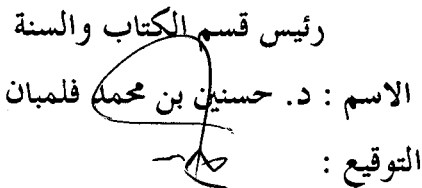 رئيس قسم الكتاب والسنة
الاسم : د. حسنين بن محمد فلمبان
التوقيع :